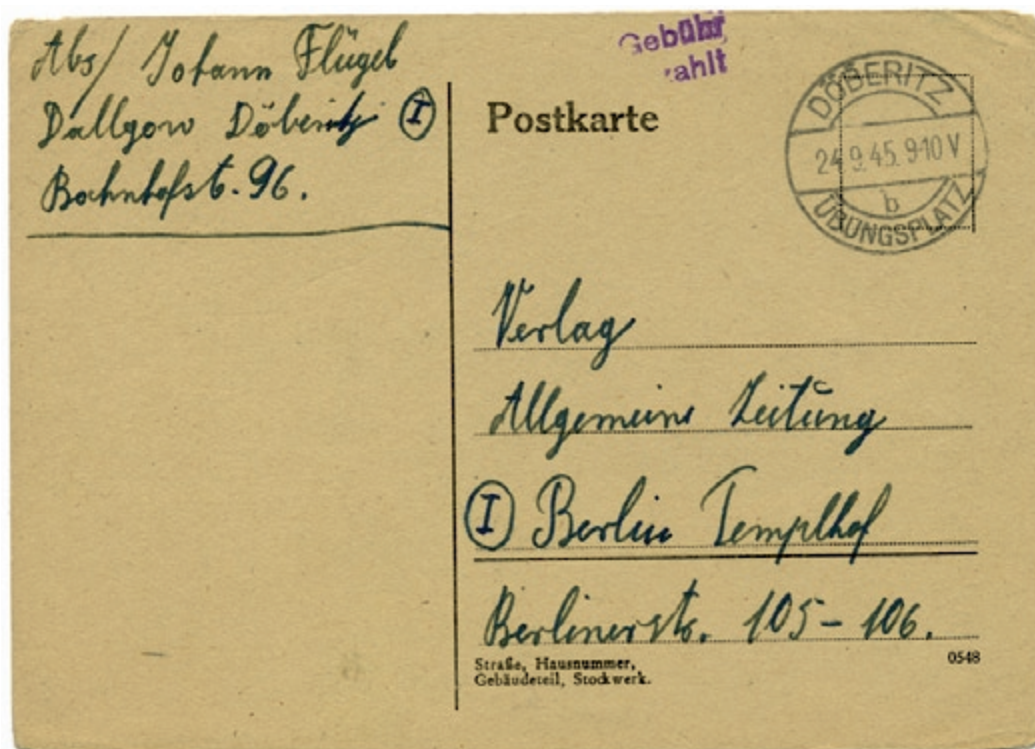 Abs/ Johann Flügel
Dallgow Döberitz (I)
Bahnhofst. 96.
Gebühr
zahlt
Postkarte
DÖBERITZ
24.9.45. 9-10 V
b
ÜBUNGSPLATZ
Verlag
Allgemeine Zeitung
(I) Berlin Templhof
Berlinerstr. 105-106.
Straße, Hausnummer,
Gebäudeteil, Stockwerk.
0548